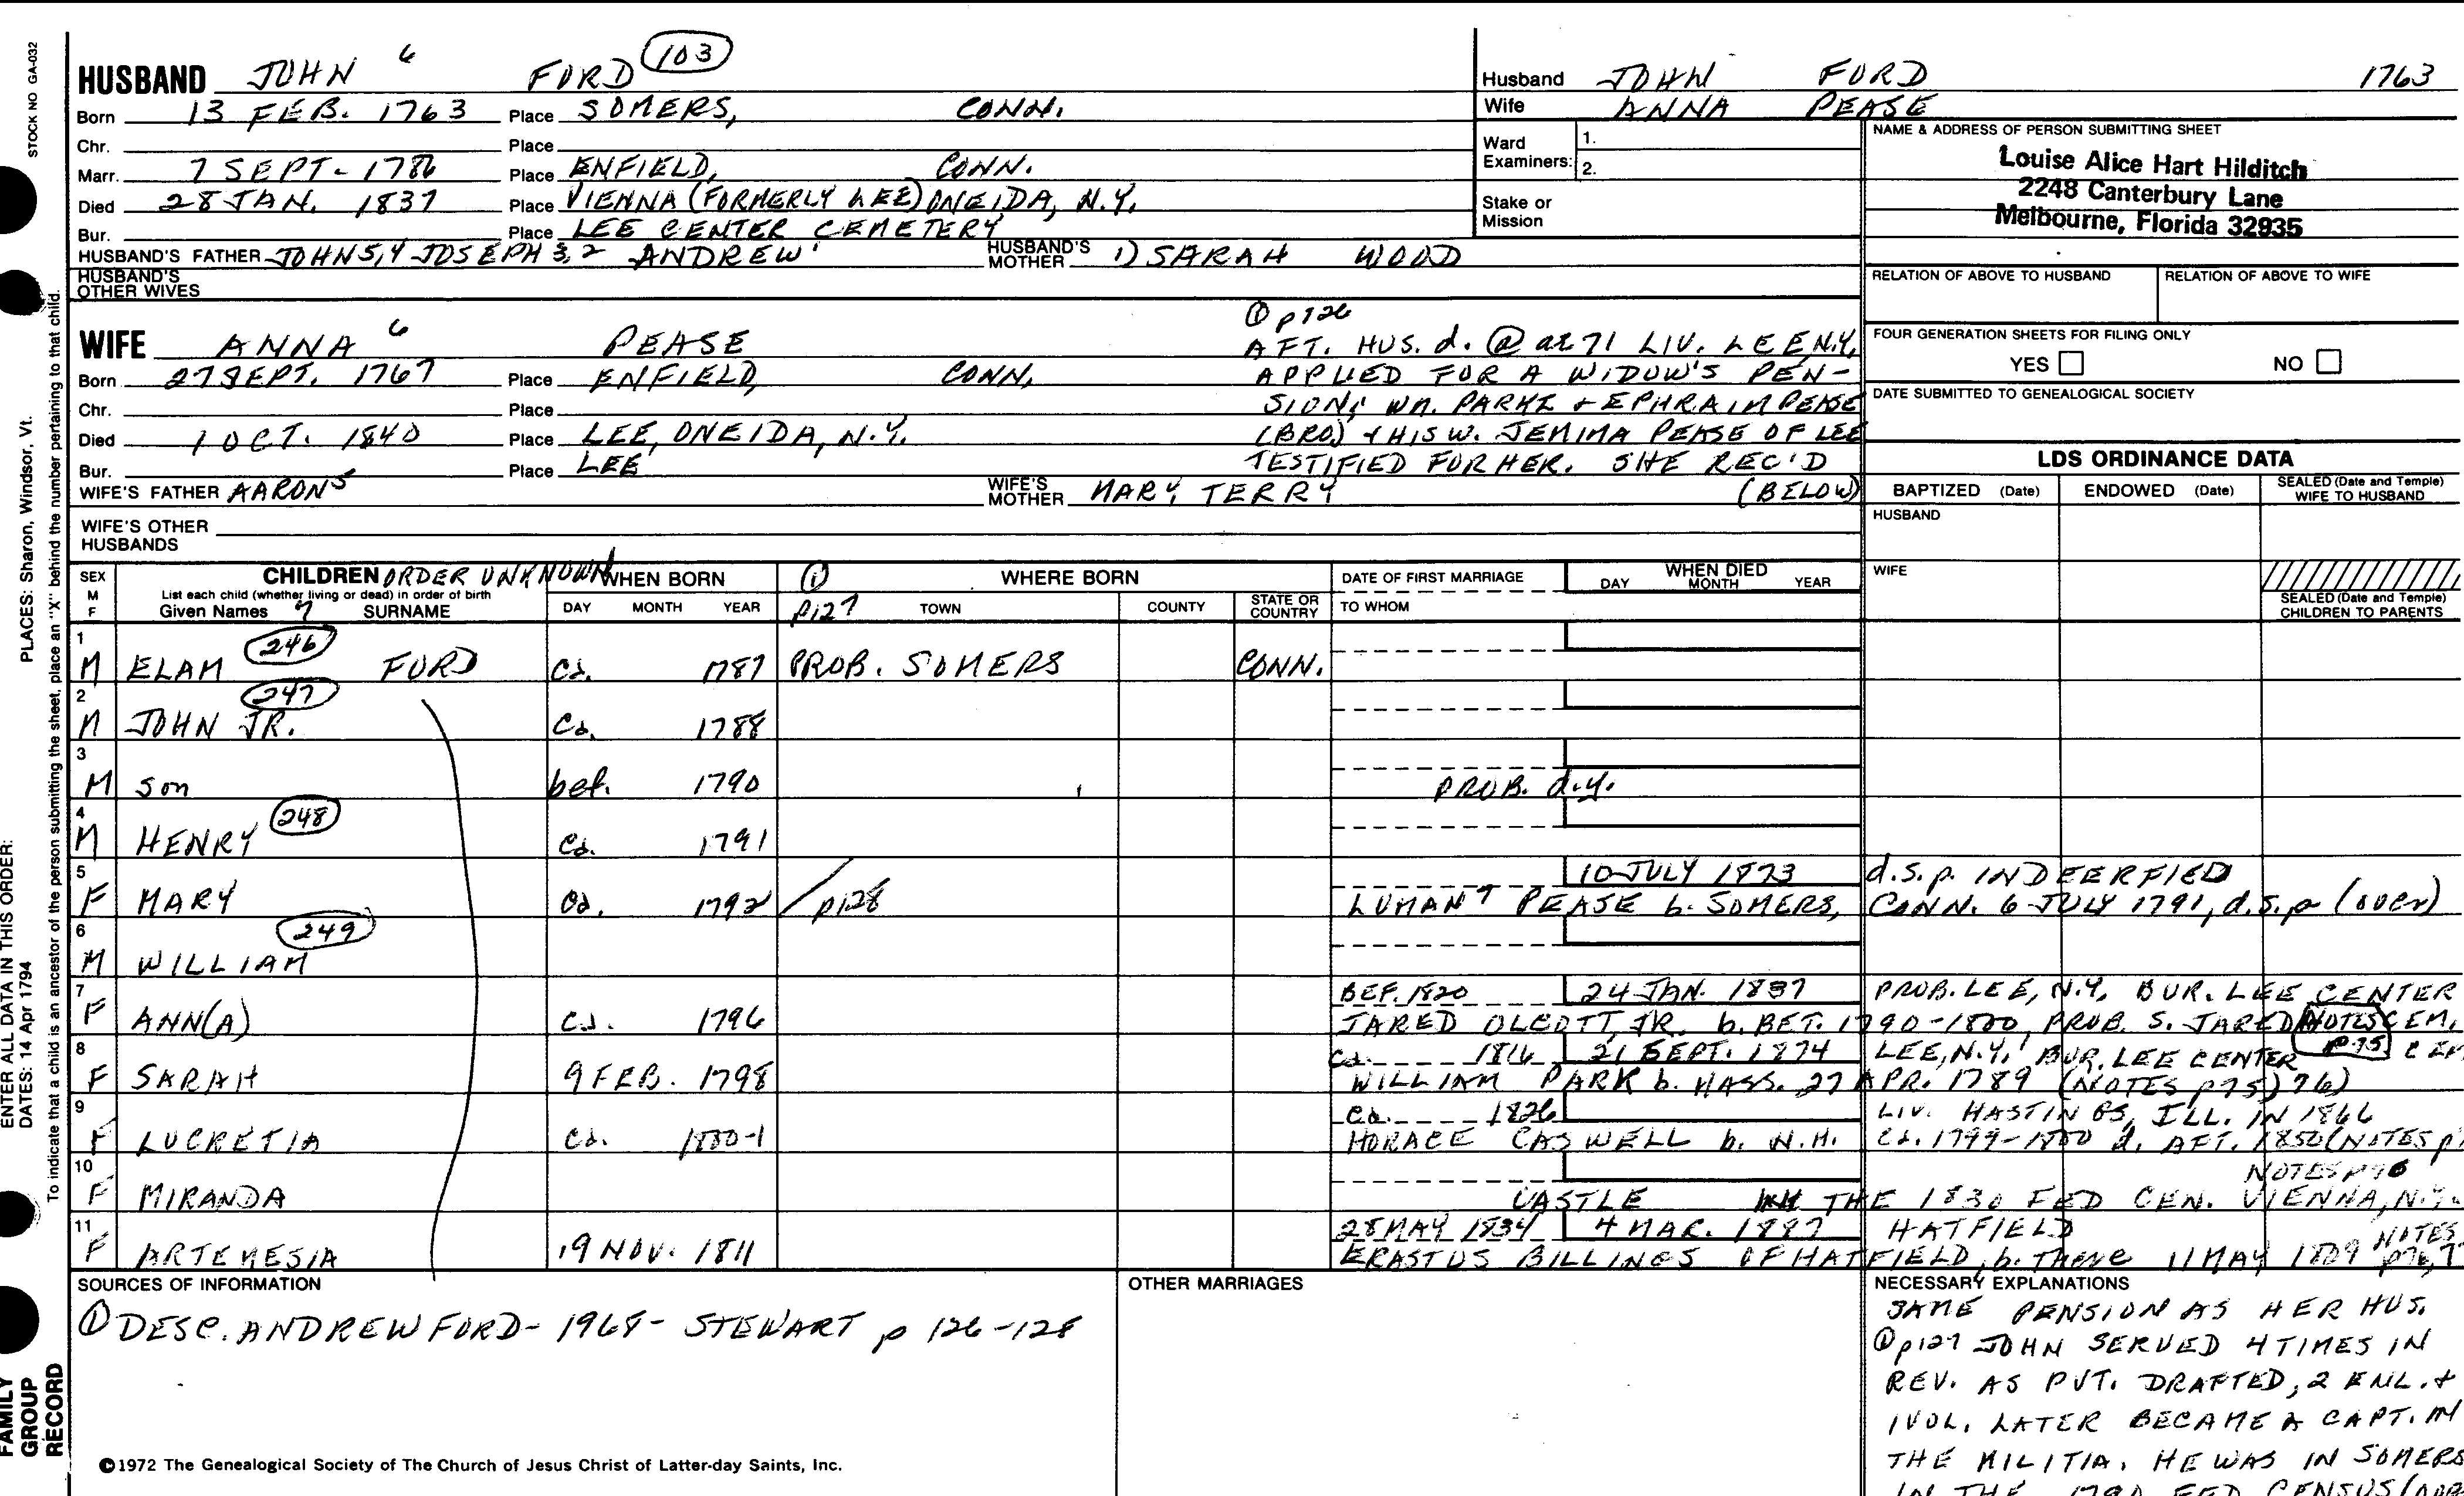 STOCK NO GA-032
HUSBAND JOHN 6 FORD 103
Born 13 FEB. 1763 Place SOMERS, CONN.
Chr. Place
Marr. 7 SEPT- 1786 Place ENFIELD, CONN.
Died 28 JAN. 1837 Place VIENNA (FORMERLY LEE) ONEIDA, N.Y.
Bur. Place LEE CENTER CEMETERY
HUSBAND'S FATHER JOHN 5,4 JOSEPH 3,2 ANDREW 1 HUSBAND'S MOTHER 1) SARAH WOOD
HUSBAND'S OTHER WIVES
Husband JOHN FORD 1763
Wife ANNA PEASE
Ward Examiners: 1.
2.
Stake or Mission
NAME & ADDRESS OF PERSON SUBMITTING SHEET
Louise Alice Hart Hilditch
2248 Canterbury Lane
Melbourne, Florida 32935
RELATION OF ABOVE TO HUSBAND RELATION OF ABOVE TO WIFE
FOUR GENERATION SHEETS FOR FILING ONLY
YES NO
DATE SUBMITTED TO GENEALOGICAL SOCIETY
WIFE ANNA 6 PEASE
Born 27 SEPT. 1767 Place ENFIELD, CONN.
Chr. Place
Died 1 OCT. 1840 Place LEE, ONEIDA, N.Y.
Bur. Place LEE
WIFE'S FATHER AARON 5 WIFE'S MOTHER MARY TERRY
WIFE'S OTHER HUSBANDS
① p126
AFT. HUS. d. @ at 71 LIV. LEE N.Y.
APPLIED FOR A WIDOW'S PEN-
SION; WM. PARKE + EPHRAIM PEASE
(BRO) + HIS W. JEMIMA PEASE OF LEE
TESTIFIED FOR HER. SHE REC'D
(BELOW)
LDS ORDINANCE DATA
BAPTIZED (Date) ENDOWED (Date) SEALED (Date and Temple) WIFE TO HUSBAND
HUSBAND
WIFE
SEALED (Date and Temple) CHILDREN TO PARENTS
SEX M F
CHILDREN ORDER UNKNOWN
List each child (whether living or dead) in order of birth
Given Names 7 SURNAME
WHEN BORN DAY MONTH YEAR
① p127 WHERE BORN TOWN COUNTY STATE OR COUNTRY
DATE OF FIRST MARRIAGE TO WHOM
WHEN DIED DAY MONTH YEAR
1 M ELAM 246 FORD Ca. 1787 PROB. SOMERS CONN.
2 M JOHN JR. 247 Ca. 1788
3 M son bef. 1790 PROB. d.y.
4 M HENRY 248 Ca. 1791
5 F MARY Ca. 1792 p128 10 JULY 1873 d.s.p. IN DEERFIELD
LUMAN 7 PEASE b. SOMERS, CONN. 6 JULY 1791, d.s.p (over)
6 M WILLIAM 249
7 F ANN(A) Ca. 1796 BEF. 1820 24 JAN. 1837 PROB. LEE, N.Y. BUR. LEE CENTER
JARED OLCOTT, JR. b. BET. 1790-1800, PROB. S. JARED NOTES p75 CEM,
8 F SARAH 9 FEB. 1798 Ca. 1816 21 SEPT. 1874 LEE, N.Y. BUR. LEE CENTER CEM
WILLIAM PARK b. MASS. 27 APR. 1789 (NOTES p75) 76)
9 F LUCRETIA Ca. 1800-1 Ca. 1826 LIV. HASTINGS, ILL. IN 1866
HORACE CASWELL b. N.H. Ca. 1799-1800 d. AFT. 1850 (NOTES
10 F MIRANDA NOTES p76
CASTLE THE 1830 FED CEN. VIENNA, N.Y.
11 F ARTEMESIA 19 NOV. 1811 28 MAY 1834 4 MAR. 1887 HATFIELD
ERASTUS BILLINGS OF HATFIELD, b. there 11 MAY 1809 NOTES p76,7
SOURCES OF INFORMATION
① DESC. ANDREW FORD- 1968- STEWART p 126-128
OTHER MARRIAGES
NECESSARY EXPLANATIONS
SAME PENSION AS HER HUS.
① p127 JOHN SERVED 4 TIMES IN
REV. AS PVT. DRAFTED, 2 ENL. +
1 VOL. LATER BECAME A CAPT. IN
THE MILITIA. HE WAS IN SOMERS
IN THE 1790 FED CENSUS
©1972 The Genealogical Society of The Church of Jesus Christ of Latter-day Saints, Inc.
PLACES: Sharon, Windsor, Vt.
To indicate that a child is an ancestor of the person submitting the sheet, place an "X" behind the number pertaining to that child.
ENTER ALL DATA IN THIS ORDER:
DATES: 14 Apr 1794
FAMILY GROUP RECORD